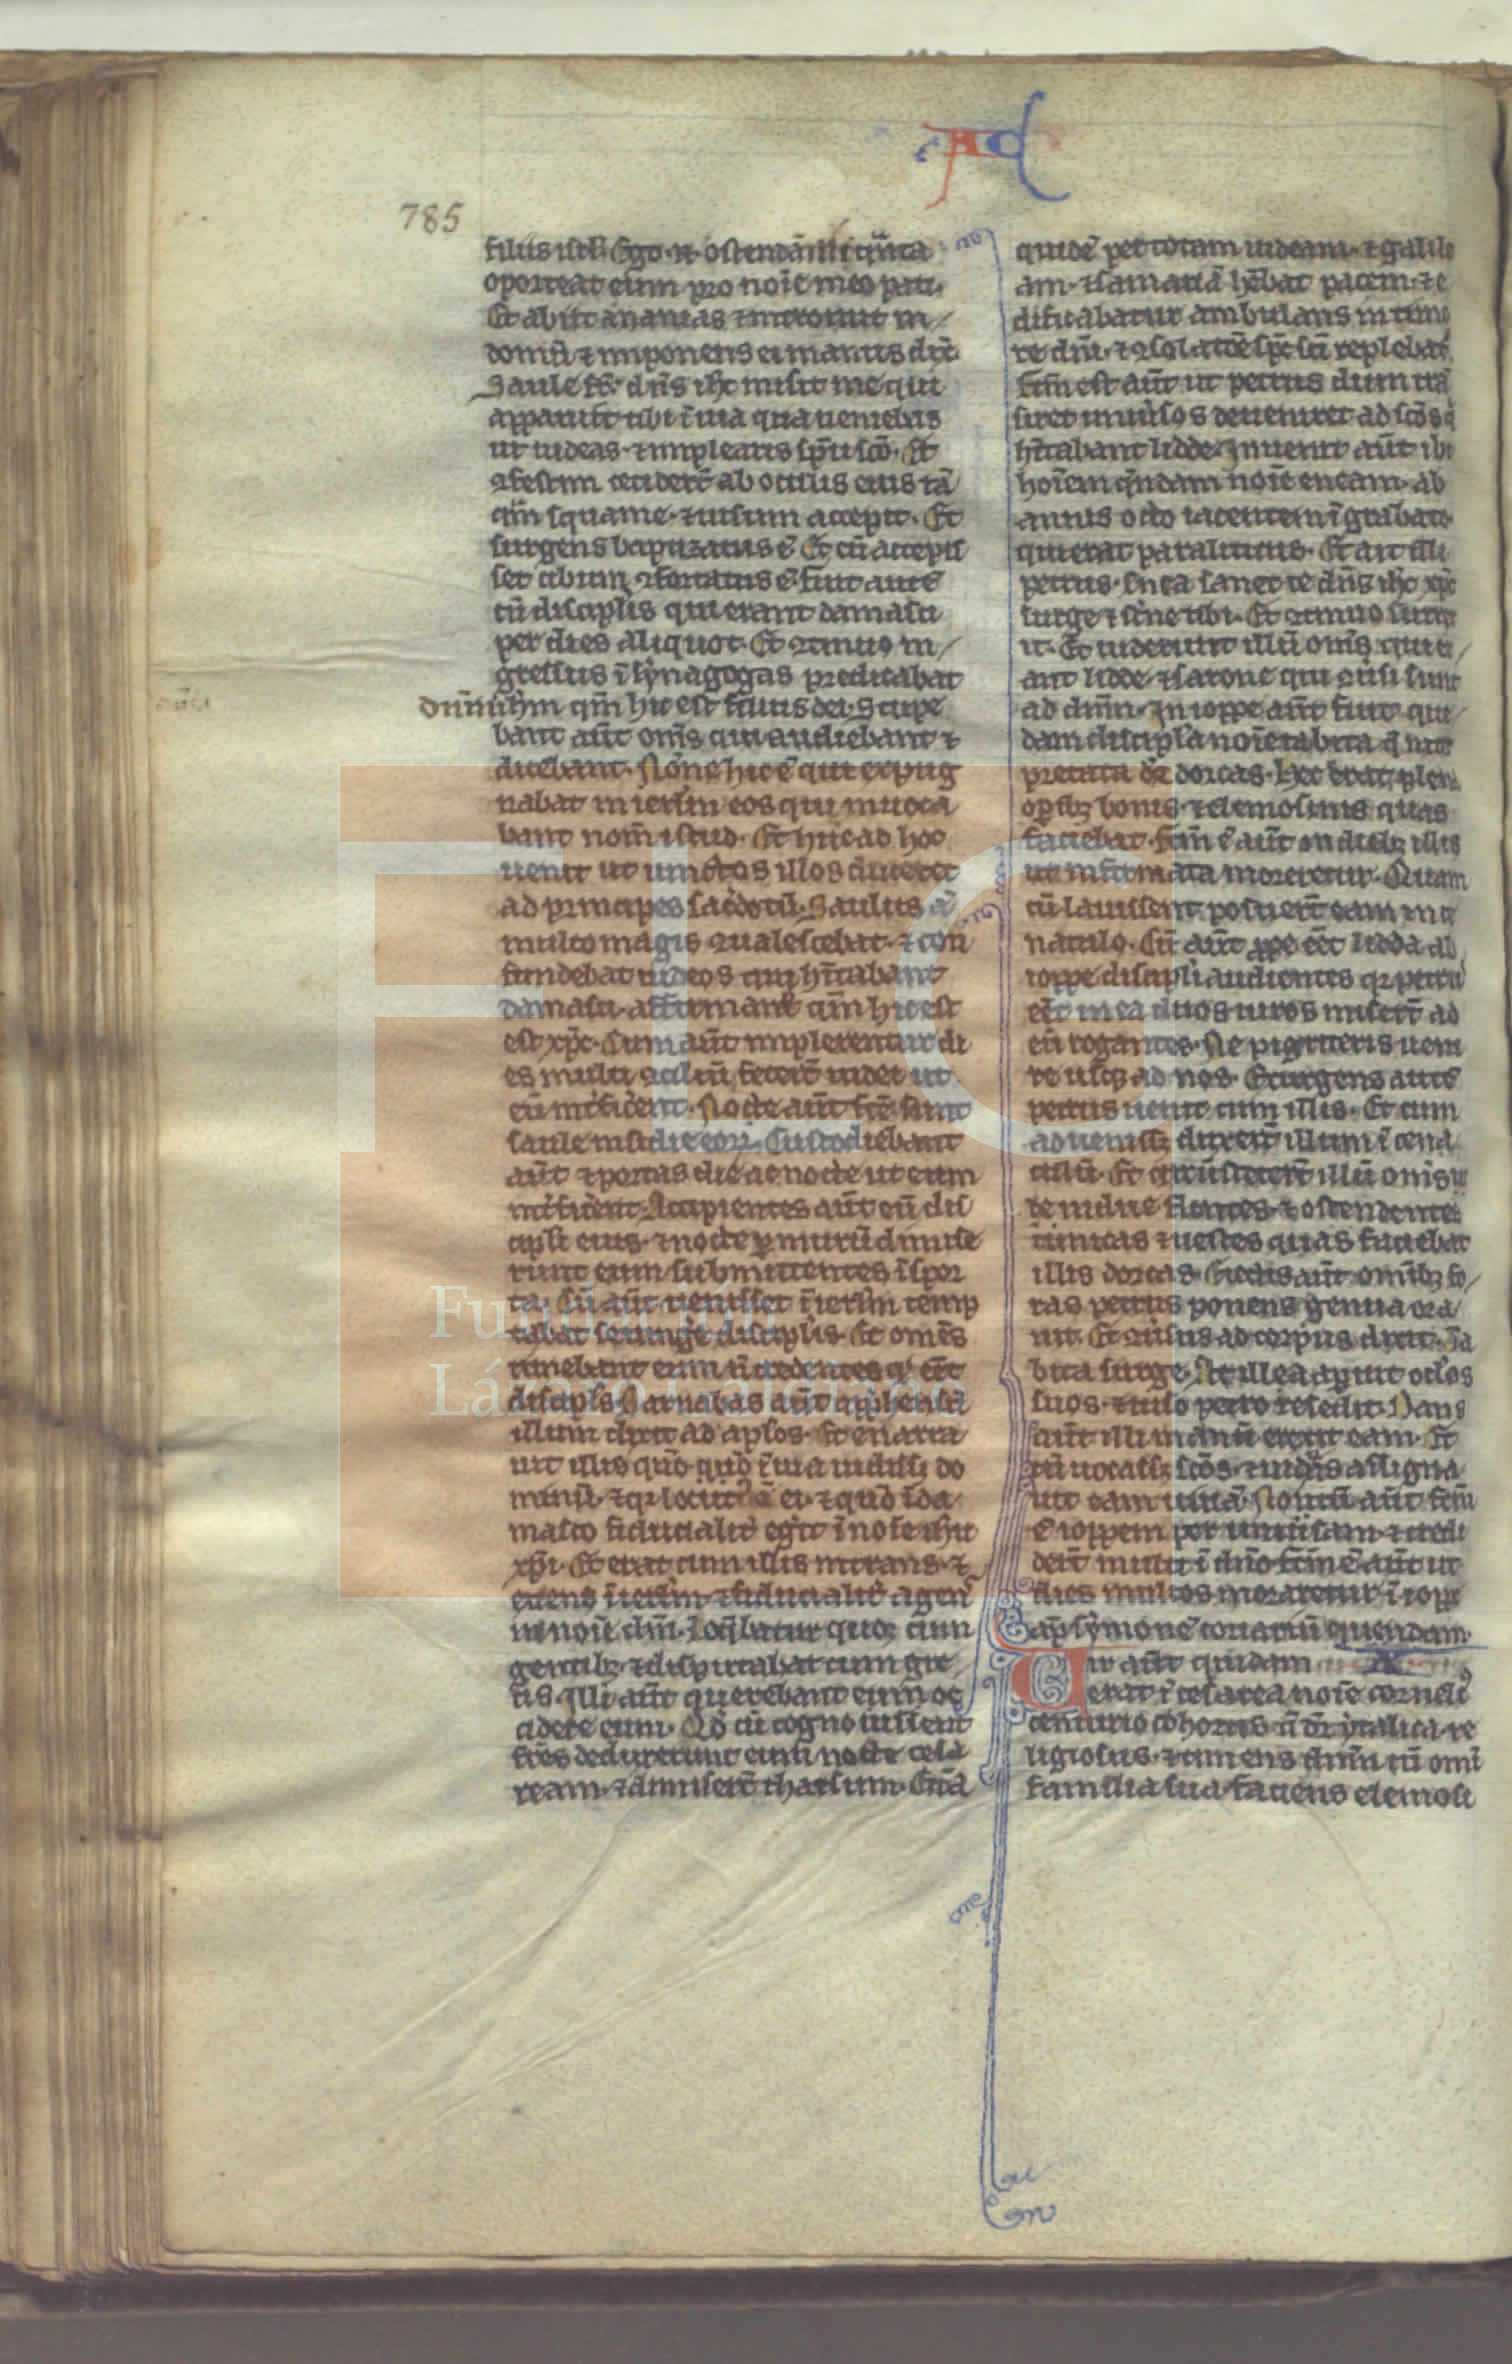 AC
785
filiis isrl̄. Ego. n. ostendā illi q̄nta
oporteat eum pro noīe meo pati.
Et abiit ananias ⁊ introiuit in
domū ⁊ imponens ei manus dix̄.
Saule fr̄. dn̄s ihc misit me qui
apparuit tibi ī uia qua ueniebas
ut uideas ⁊ implearis sp̄u sc̄o. Et
ꝯfestim cecider̄t ab oculis eius tā
qm̄ squame. ⁊ uisum accepit. Et
surgens baptizatus ē. Et cū accepis
set cibum ꝯfortatus ē. fuit autē
cū discipl̄is qui erant damasci
per dies aliquot. Et ꝯtinuo in
gressus ī synagogas predicabat
dn̄m ihm qm̄ hic est filius dei. Stupe
bant aūt om̄s qui audiebant ⁊
dicebant. Nōne hic ē qui expug
nabat in ierlm̄ eos qui inuoca
bant nom̄ istud. Et huc ad hoc
uenit ut uinctos illos duceret
ad principes sac̄dotū. Saulus ā
multo magis ꝯualescebat. ⁊ con
fundebat iudeos qui hītabant
damasci. affirmans qm̄ hic est
est xp̄c. Cum aūt implerentur di
es multi ꝯciliū fecer̄t iudei ut
eū int̄ficerent. Note aūt fc̄e sunt
saule insidie eoꝝ. Custodiebant
aūt ⁊ portas die ac nocte ut eum
int̄ficerent. Accipientes aūt eū dis
cipl̄i eius. ⁊ nocte ꝑ murū dimise
runt eum submittentes ī spor
ta. Cū aūt uenisset ī ierlm̄ temp
tabat se iunḡe discipl̄is. Et omēs
timebant eum n̄ credentes qꝛ ēēt
discipl̄s. Barnabas aūt app̄hensū
illum duxit ad apl̄os. Et enarra
uit illis quō ī uia uidiss̄ do
minū. ⁊ qꝛ locut̄ ē ei. ⁊ quō ī da
masco fiducialit̄ egit ī noīe ihu
xp̄i. Et erat cum illis intrans. ⁊
exiens ī ierlm̄. ⁊ fiducialit̄ agen̄
in noīe dn̄i. Loq̄batur quoꝫ cum
gentibꝫ ⁊ disputabat cum gre
cis. Illi aūt querebant eum oc
cidere eum. Qd̄ cū cognouissent
frēs deduxerunt eum nocte cesa
ream. ⁊ dimiser̄t tharsum. Ecc̄a
quidē per totam iudeam. ⁊ galile
am. ⁊ samariā hēbat pacem. ⁊ e
dificabatur ambulans in timo
re dn̄i. ⁊ ꝯsolatōe sp̄c sc̄i replebat̄.
fcm̄ est aūt ut petrus dum trā
siret uniu̅sos deueniret ad sc̄os q̄
hītabant lidde. Inuenit aūt ibi
hoīem q̄ndam noīe eneam. ab
annis octo iacentem ī grabato.
qui erat paraliticus. Et ait illi
petrus. Enea sanet te dn̄s ihc xp̄c
surge ⁊ st̄ne tibi. Et ꝯtinuo surrex
it. Et uiderunt illū om̄s qui er
ant lidde ⁊ sarone qui ꝯuersi sunt
ad dn̄m. In ioppe aūt fuit que
dam discipl̄a noīe tabita q̄ int̄
pretata dr̄ dorcas. Hec erat plena
op̄ibꝫ bonis ⁊ elemosinis quas
faciebat. fcm̄ ē aūt in diebꝫ illis
ut infirmata moreretur. Quam
cū lauissent posuer̄t eam in ce
naculo. Cū aūt ꝓpe ēēt lidda ab
ioppe discipl̄i audientes qꝛ petrus
ēēt in ea duos uiros miser̄t ad
eū rogantes. Ne pigriteris ueni
re usqꝫ ad nos. Exurgens autē
petrus uenit cum illis. Et cum
aduenisset duxer̄t illum ī cena
culū. Et circūsteter̄t illū om̄s ui
te uidue flentes. ⁊ ostendentes
tunicas ⁊ uestes quas faciebat
illis dorcas. Eiectis aūt omībꝫ fo
ras petrus ponens genua ora
uit. Et ꝯuersus ad corpus dixit. Ta
bita surge. At illa apuit ocl̄os
suos. ⁊ uiso petro resedit. Dans
aūt illi manū erexit eam. Et
cū uocass̄ sc̄os ⁊ uiduas assigna
uit eam uiuā. Notū aūt fcm̄
ē ioppem per uniu̅sam. ⁊ credi
der̄t multi ī dn̄o. fcm̄ ē aūt ut
dies multos moraretur ī ioppe
ap̄ symonē coriariū quendam.
Uir aūt quidam X
erat ī cesarea noīe cornelī
centurio cohortis q̄ dr̄ ytalica re
ligiosus. ⁊ timens dn̄m cū omī
familia sua. faciens elemosi
FLG
Fundación
Lázaro Galdiano